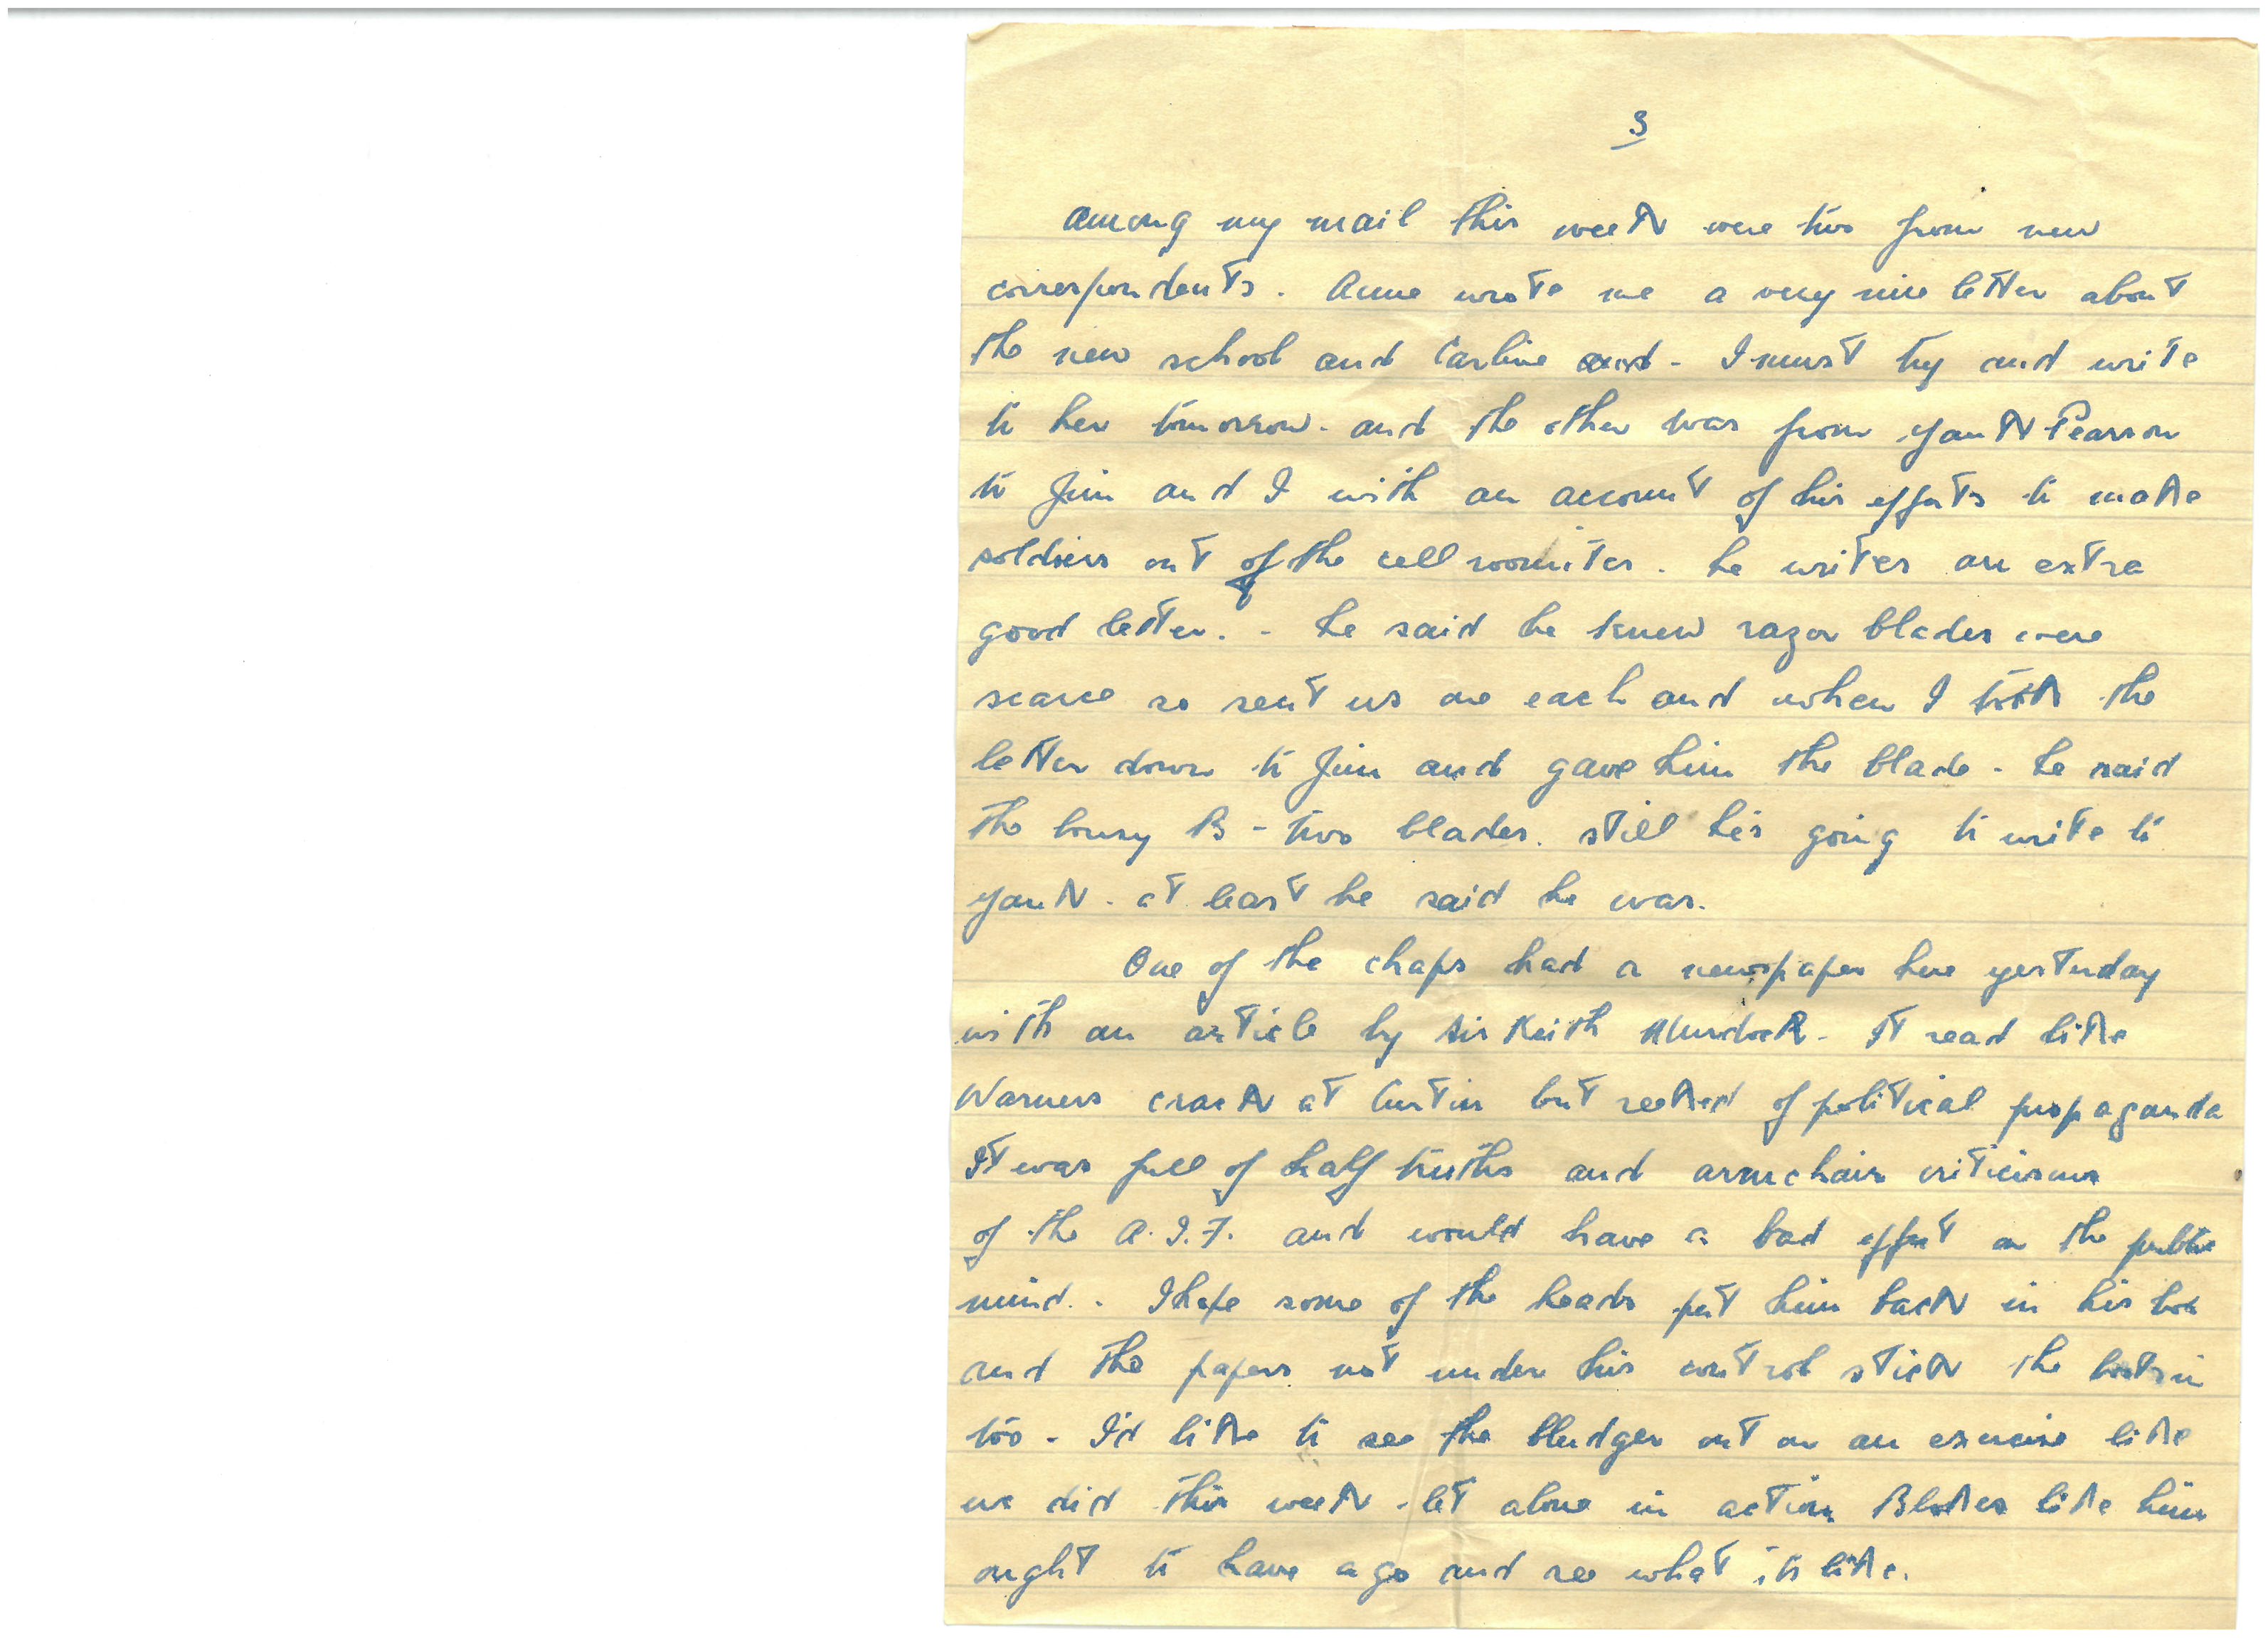 3
Among my mail this week were two from new
correspondents. Anne wrote me a very nice letter about
the new school and Carline and - I must try and write
to her tomorrow - and the other was from Yank Pearson
to Jim and I with an account of his efforts to make
soldiers out of the cell roomites. he writes an extra
good letter. - he said he knew razor blades were
scarce so sent us one each and when I took the
letter down to Jim and gave him the blade - he said
the lousy B - two blades. still he's going to write to
Yank - at least he said he was.
One of the chaps had a newspaper here yesterday
with an article by Sir Keith Murdock - It read like
Warners crack at Curtin but reeked of political propaganda
It was full of half truths and armchair criticisms
of the A.I.F. and would have a bad effect on the public
mind. - I hope some of the heads put him back in his box
and the papers not under his control stick the boots in
too - I'd like to see the bludger out on an exercise like
we did this week - let alone in action Blokes like him
ought to have a go and see what its like.